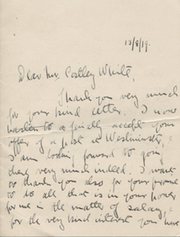 13/8/19.
Dear Mr. Costley White,
Thank you very much
for your kind letter. I now
hasten to finally accept your
offer of a post at Westminster.
I am looking forward to your
very much indeed. I want
to thank you also for your promise
to do all that is in your power
for me in the matter of salary,
for the very kind interest you have